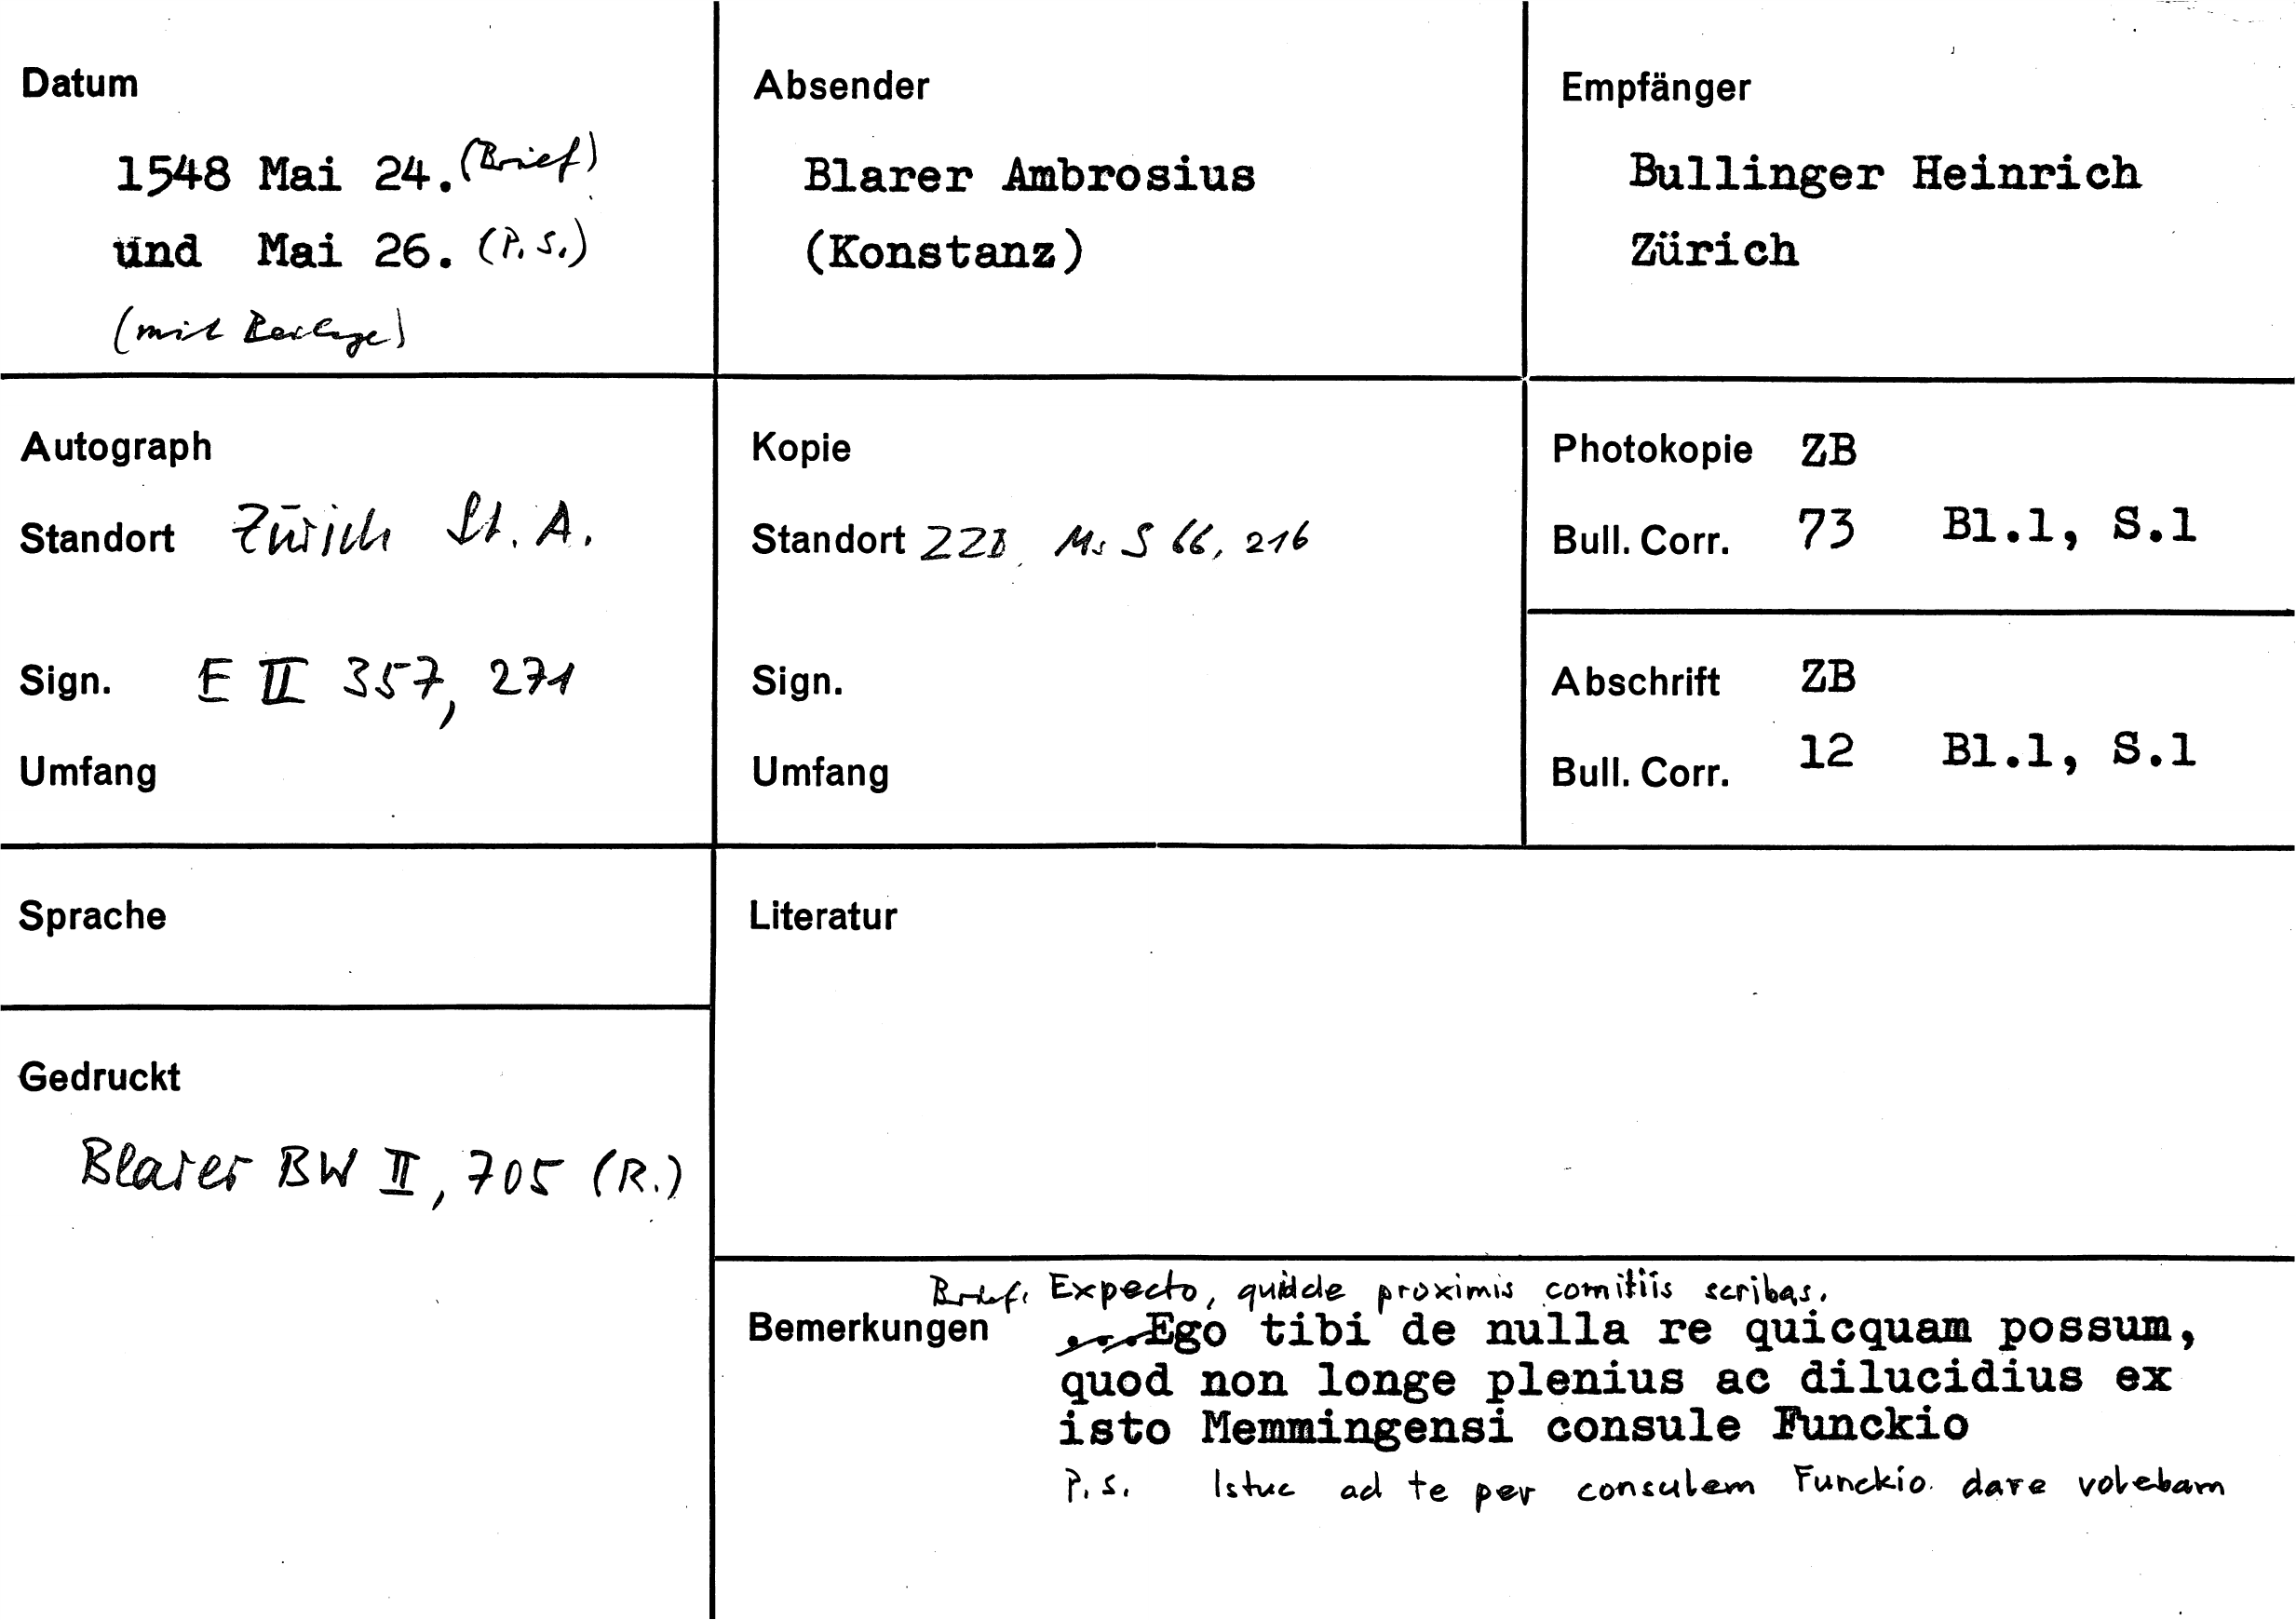 Datum
1548 Mai 24. (Brief)
und Mai 26. (P.S.)
(mit Beilage)
Absender
Blarer Ambrosius
(Konstanz)
Empfänger
Bullinger Heinrich
Zürich
Autograph
Standort Zürich St. A.
Sign. E II 357, 271
Umfang
Kopie
Standort ZZB, Ms S 66, 216
Sign.
Umfang
Photokopie ZB
Bull. Corr. 73 Bl.1, S.1
Abschrift ZB
Bull. Corr. 12 Bl.1, S.1
Sprache
Gedruckt
Blarer BW II, 705 (R.)
Literatur
Brief: Expecto, quid de proximis comitiis scribas.
Bemerkungen ...Ego tibi de nulla re quicquam possum,
quod non longe plenius ac dilucidius ex
isto Memmingensi consule Funckio
P.S. Istuc ad te per consulem Funckio dare volebam